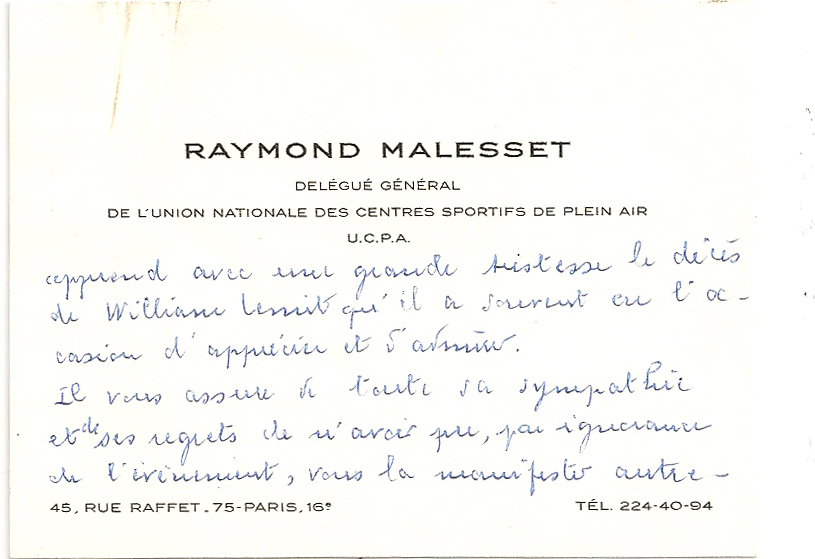 RAYMOND MALESSET
DELÉGUÉ GÉNÉRAL
DE L'UNION NATIONALE DES CENTRES SPORTIFS DE PLEIN AIR
U.C.P.A.
apprend avec une grande tristesse le décès
de William Lemit qu'il a souvent eu l'oc-
casion d'apprécier et d'admirer.
Il vous assure de toute sa sympathie
et de ses regrets de n'avoir pu, par ignorance
de l'évènement, vous la manifester autre-
45, RUE RAFFET. 75-PARIS. 16e
TÉL. 224-40-94